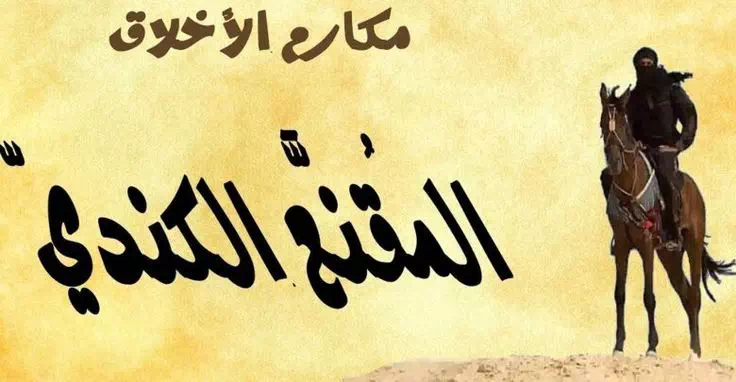 مكارم الأخلاق
المُقنَّعُ الكنديّ